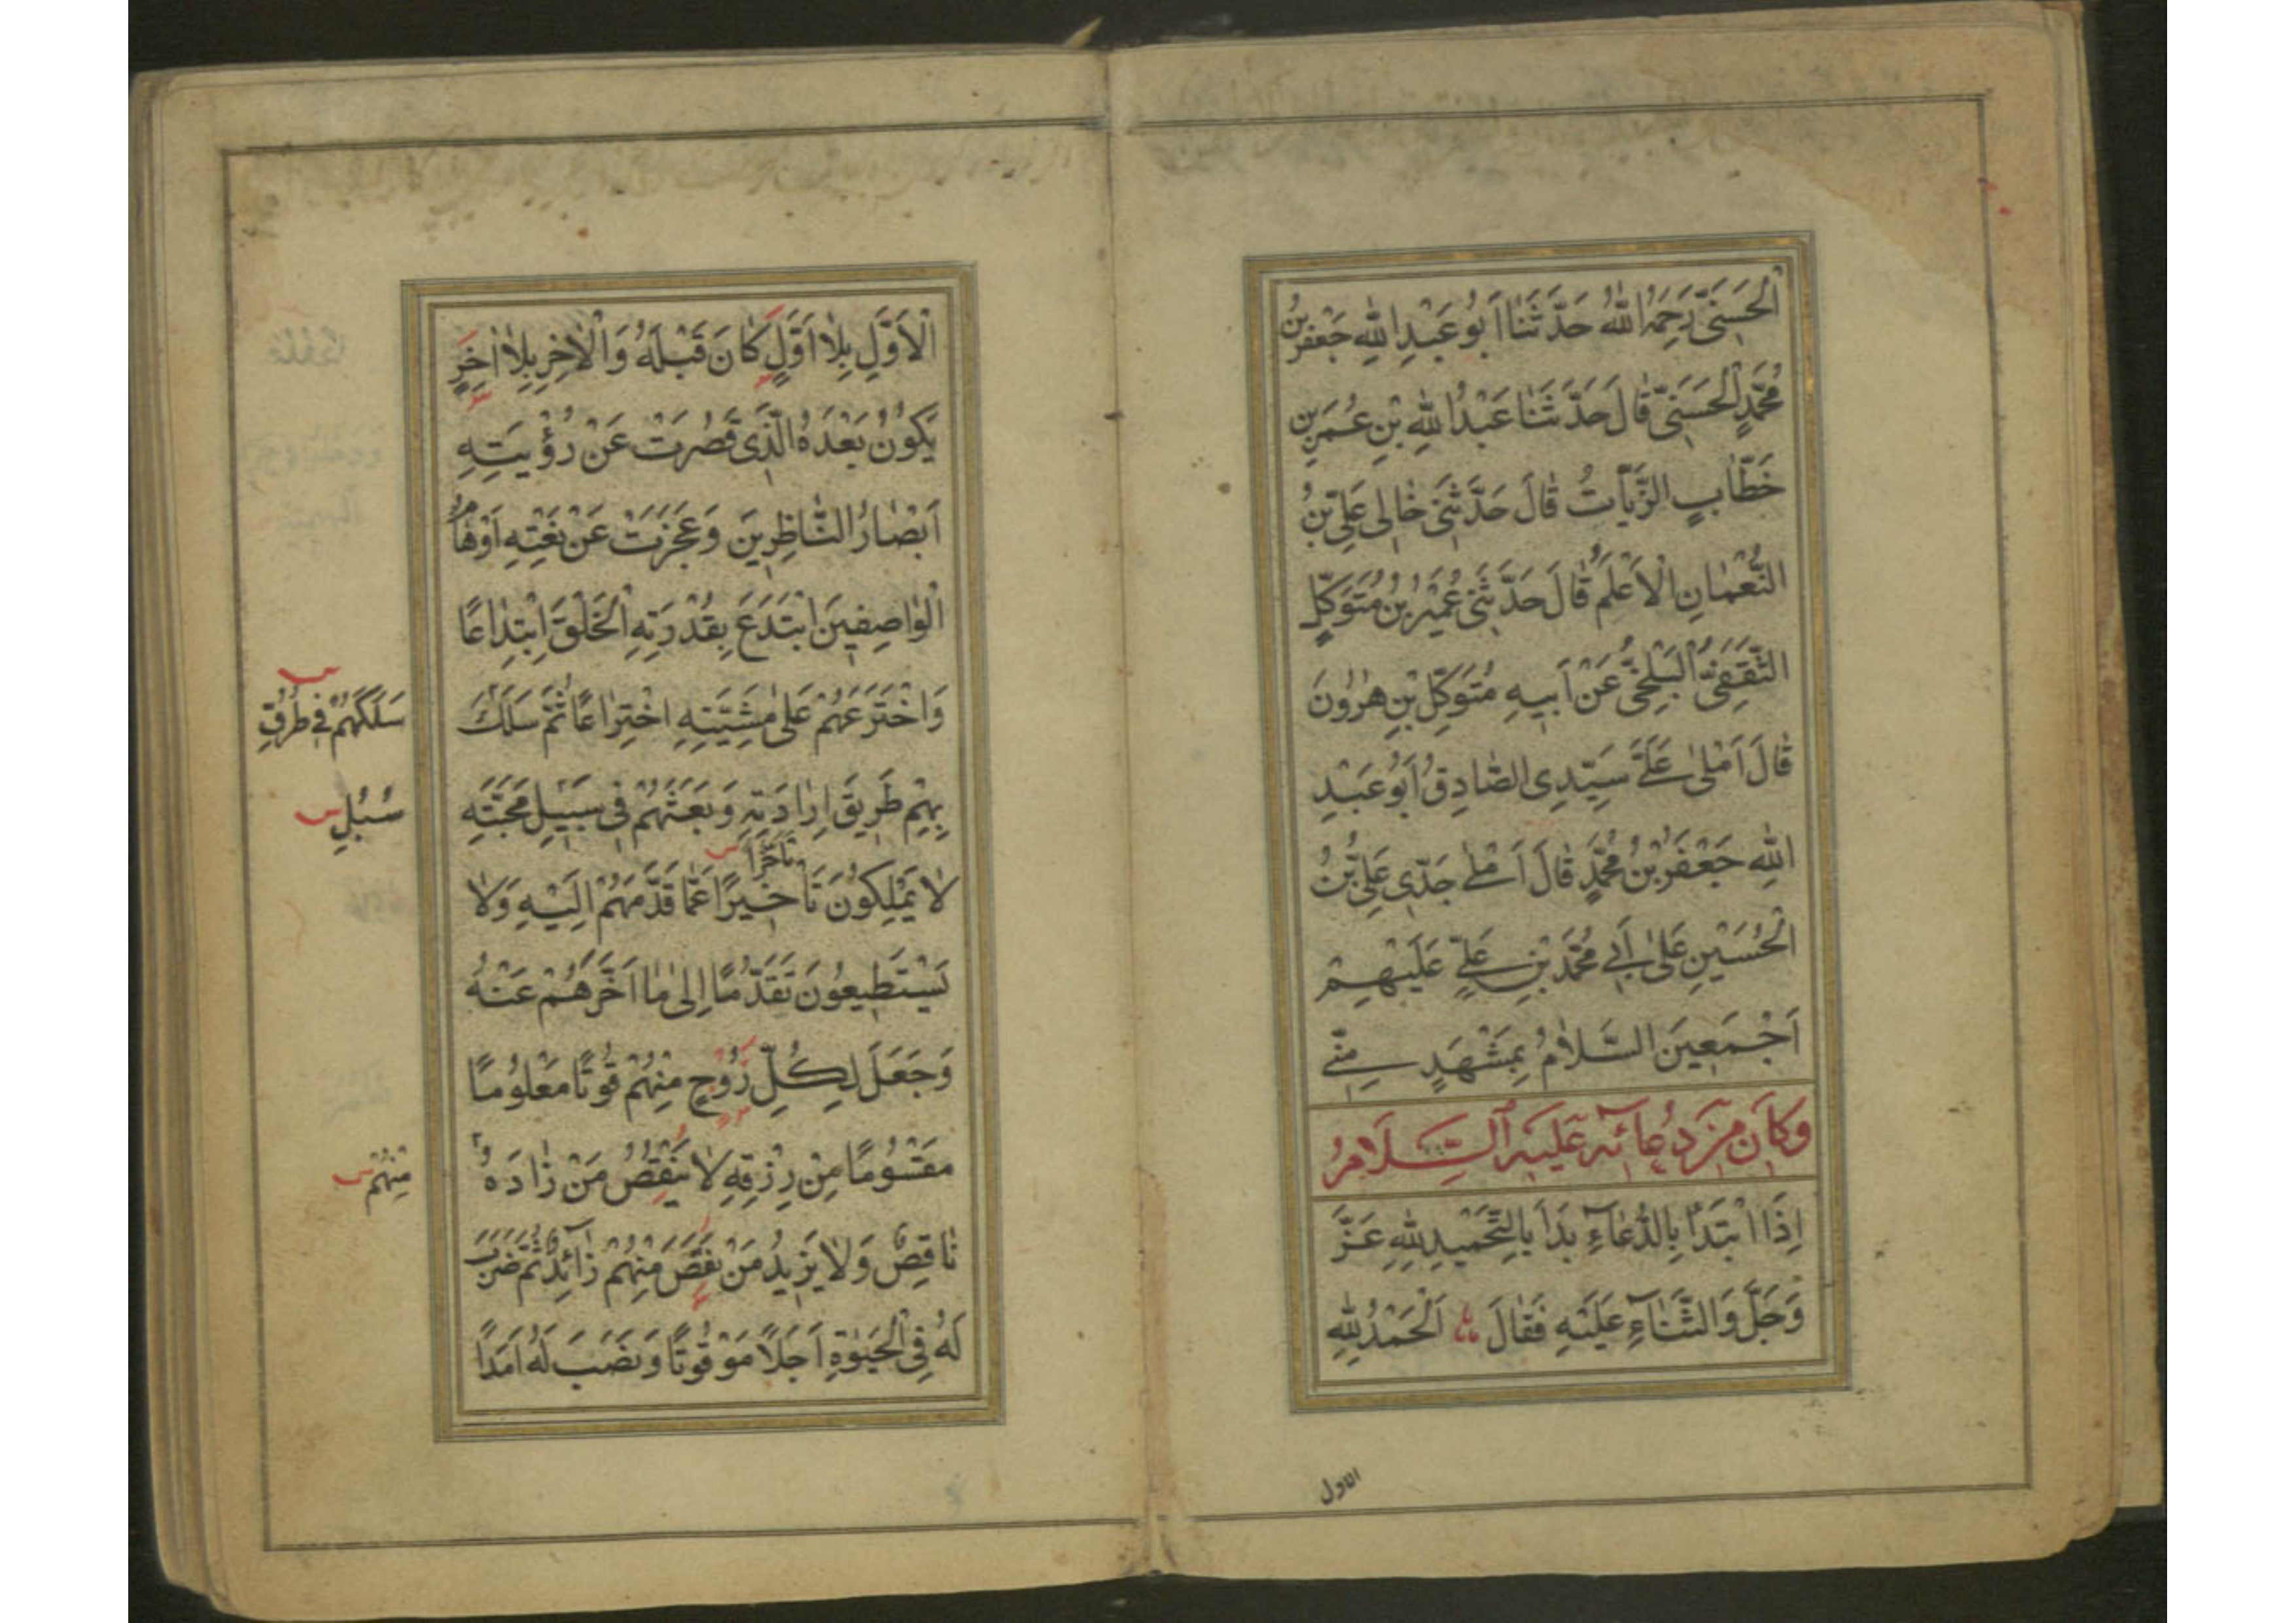 الْحَسَنِيُّ رَحِمَهُ اللهُ حَدَّثَنَا أَبُو عَبْدِ اللهِ جَعْفَرُ بْنُ
مُحَمَّدٍ الْحَسَنِيُّ قَالَ حَدَّثَنَا عَبْدُ اللهِ بْنِ عُمَرَ بْنِ
خَطَّابٍ الزَّيَّاتُ قَالَ حَدَّثَنِي خَالِي عَلِيُّ بْنُ
النُّعْمَانِ الْأَعْلَمُ قَالَ حَدَّثَنِي عُمَيْرُ بْنُ مُتَوَكِّلٍ
الثَّقَفِيُّ الْبَلْخِيُّ عَنْ أَبِيهِ مُتَوَكِّلِ بْنِ هٰرُونَ
قَالَ أَمْلَى عَلَيَّ سَيِّدِي الصَّادِقُ أَبُو عَبْدِ
اللهِ جَعْفَرُ بْنُ مُحَمَّدٍ قَالَ أَمْلَى جَدِّي عَلِيُّ بْنُ
الْحُسَيْنِ عَلَى أَبِي مُحَمَّدِ بْنِ عَلِيٍّ عَلَيْهِمْ
أَجْمَعِينَ السَّلَامُ بِمَشْهَدٍ مِنِّي
وَكَانَ مِنْ دُعَائِهِ عَلَيْهِ السَّلَامُ
إِذَا ابْتَدَأَ بِالدُّعَاءِ بَدَأَ بِالتَّحْمِيدِ لِلّٰهِ عَزَّ
وَجَلَّ وَالثَّنَاءِ عَلَيْهِ فَقَالَ اَلْحَمْدُ لِلّٰهِ
الاول
الْأَوَّلِ بِلَا أَوَّلٍ كَانَ قَبْلَهُ وَالْآخِرِ بِلَا آخِرٍ
يَكُونُ بَعْدَهُ الَّذِي قَصُرَتْ عَنْ رُؤْيَتِهِ
أَبْصَارُ النَّاظِرِينَ وَعَجَزَتْ عَنْ نَعْتِهِ أَوْهَامُ
الْوَاصِفِينَ ابْتَدَعَ بِقُدْرَتِهِ الْخَلْقَ ابْتِدَاعًا
وَاخْتَرَعَهُمْ عَلَى مَشِيَّتِهِ اخْتِرَاعًا ثُمَّ سَلَكَ
سَلَكَهُمْ فِي طُرُقِ
بِهِمْ طَرِيقَ إِرَادَتِهِ وَبَعَثَهُمْ فِي سَبِيلِ مَحَبَّتِهِ
سُبُلِ
تَأَخُّرًا
لَا يَمْلِكُونَ تَأْخِيرًا عَمَّا قَدَّمَهُمْ إِلَيْهِ وَلَا
يَسْتَطِيعُونَ تَقَدُّمًا إِلَى مَا أَخَّرَهُمْ عَنْهُ
وَجَعَلَ لِكُلِّ رُوحٍ مِنْهُمْ قُوتًا مَعْلُومًا
مَقْسُومًا مِنْ رِزْقِهِ لَا يَنْقُصُ مَنْ زَادَهُ
مِنْهُمْ
نَاقِصٌ وَلَا يَزِيدُ مَنْ نَقَصَ مِنْهُمْ زَائِدٌ ثُمَّ ضَرَبَ
لَهُ فِي الْحَيٰوةِ أَجَلًا مَوْقُوتًا وَنَصَبَ لَهُ أَمَدًا